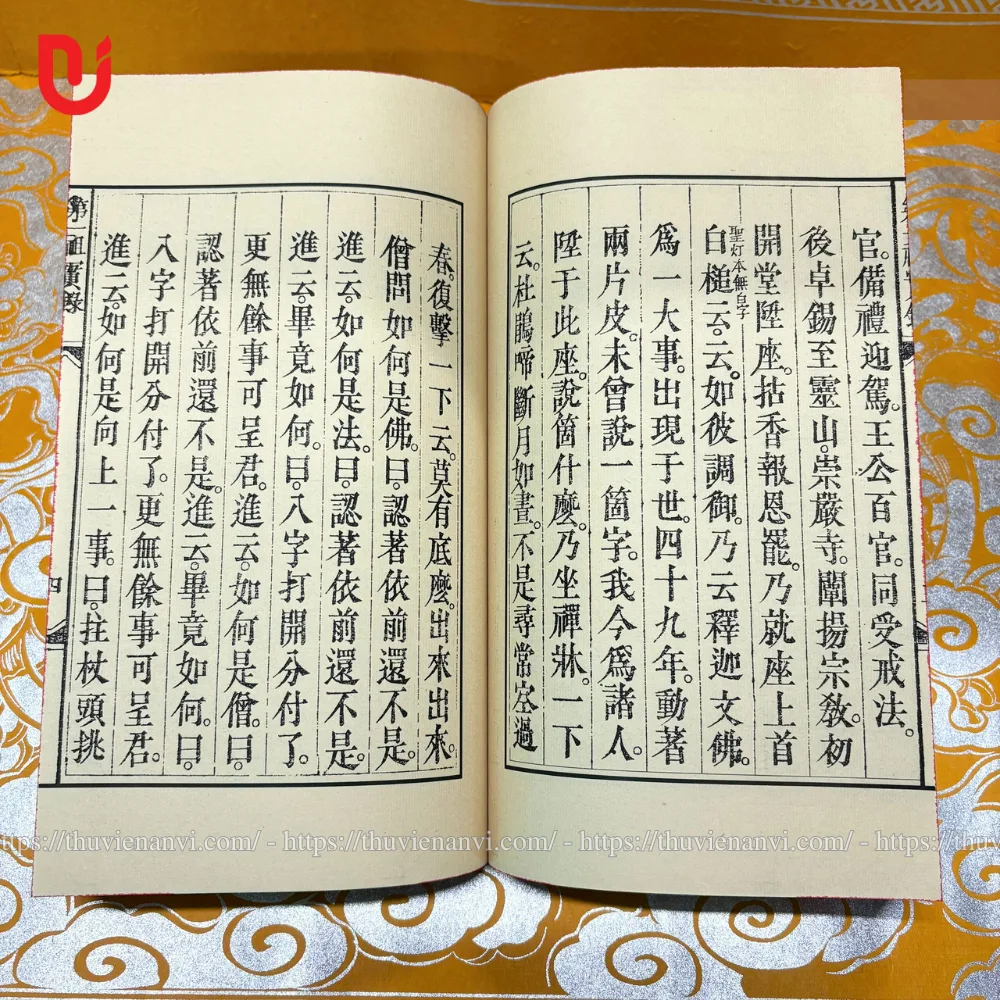 官。備禮迎駕。王公百官。同受戒法。
後卓錫至靈山。崇嚴寺。闡揚宗教。初
開堂陞座。拈香報恩罷。乃就座上首
白槌云。云。如彼調御。乃云釋迦文佛。
聖灯本無白字
爲一大事。出現于世。四十九年。動著
兩片皮。未曾說一箇字。我今爲諸人。
陞于此座。說箇什麼。乃坐禪牀。一下
云。杜鵑啼斷月如晝。不是尋常空過
春。復擊一下云。莫有底麼。出來出來。
僧問如何是佛。曰。認著依前還不是。
進云。如何是法。曰。認著依前還不是。
進云。畢竟如何。曰。八字打開分付了。
更無餘事可呈君。進云。如何是僧。曰。
認著依前還不是。進云。畢竟如何。曰。
八字打開分付了。更無餘事可呈君。
進云。如何是向上一事。曰。拄杖頭挑
第一祖實錄
四
https://thuvienanvi.com/ - https://thuvienanvi.com/ - https://thuvienanvi.com/